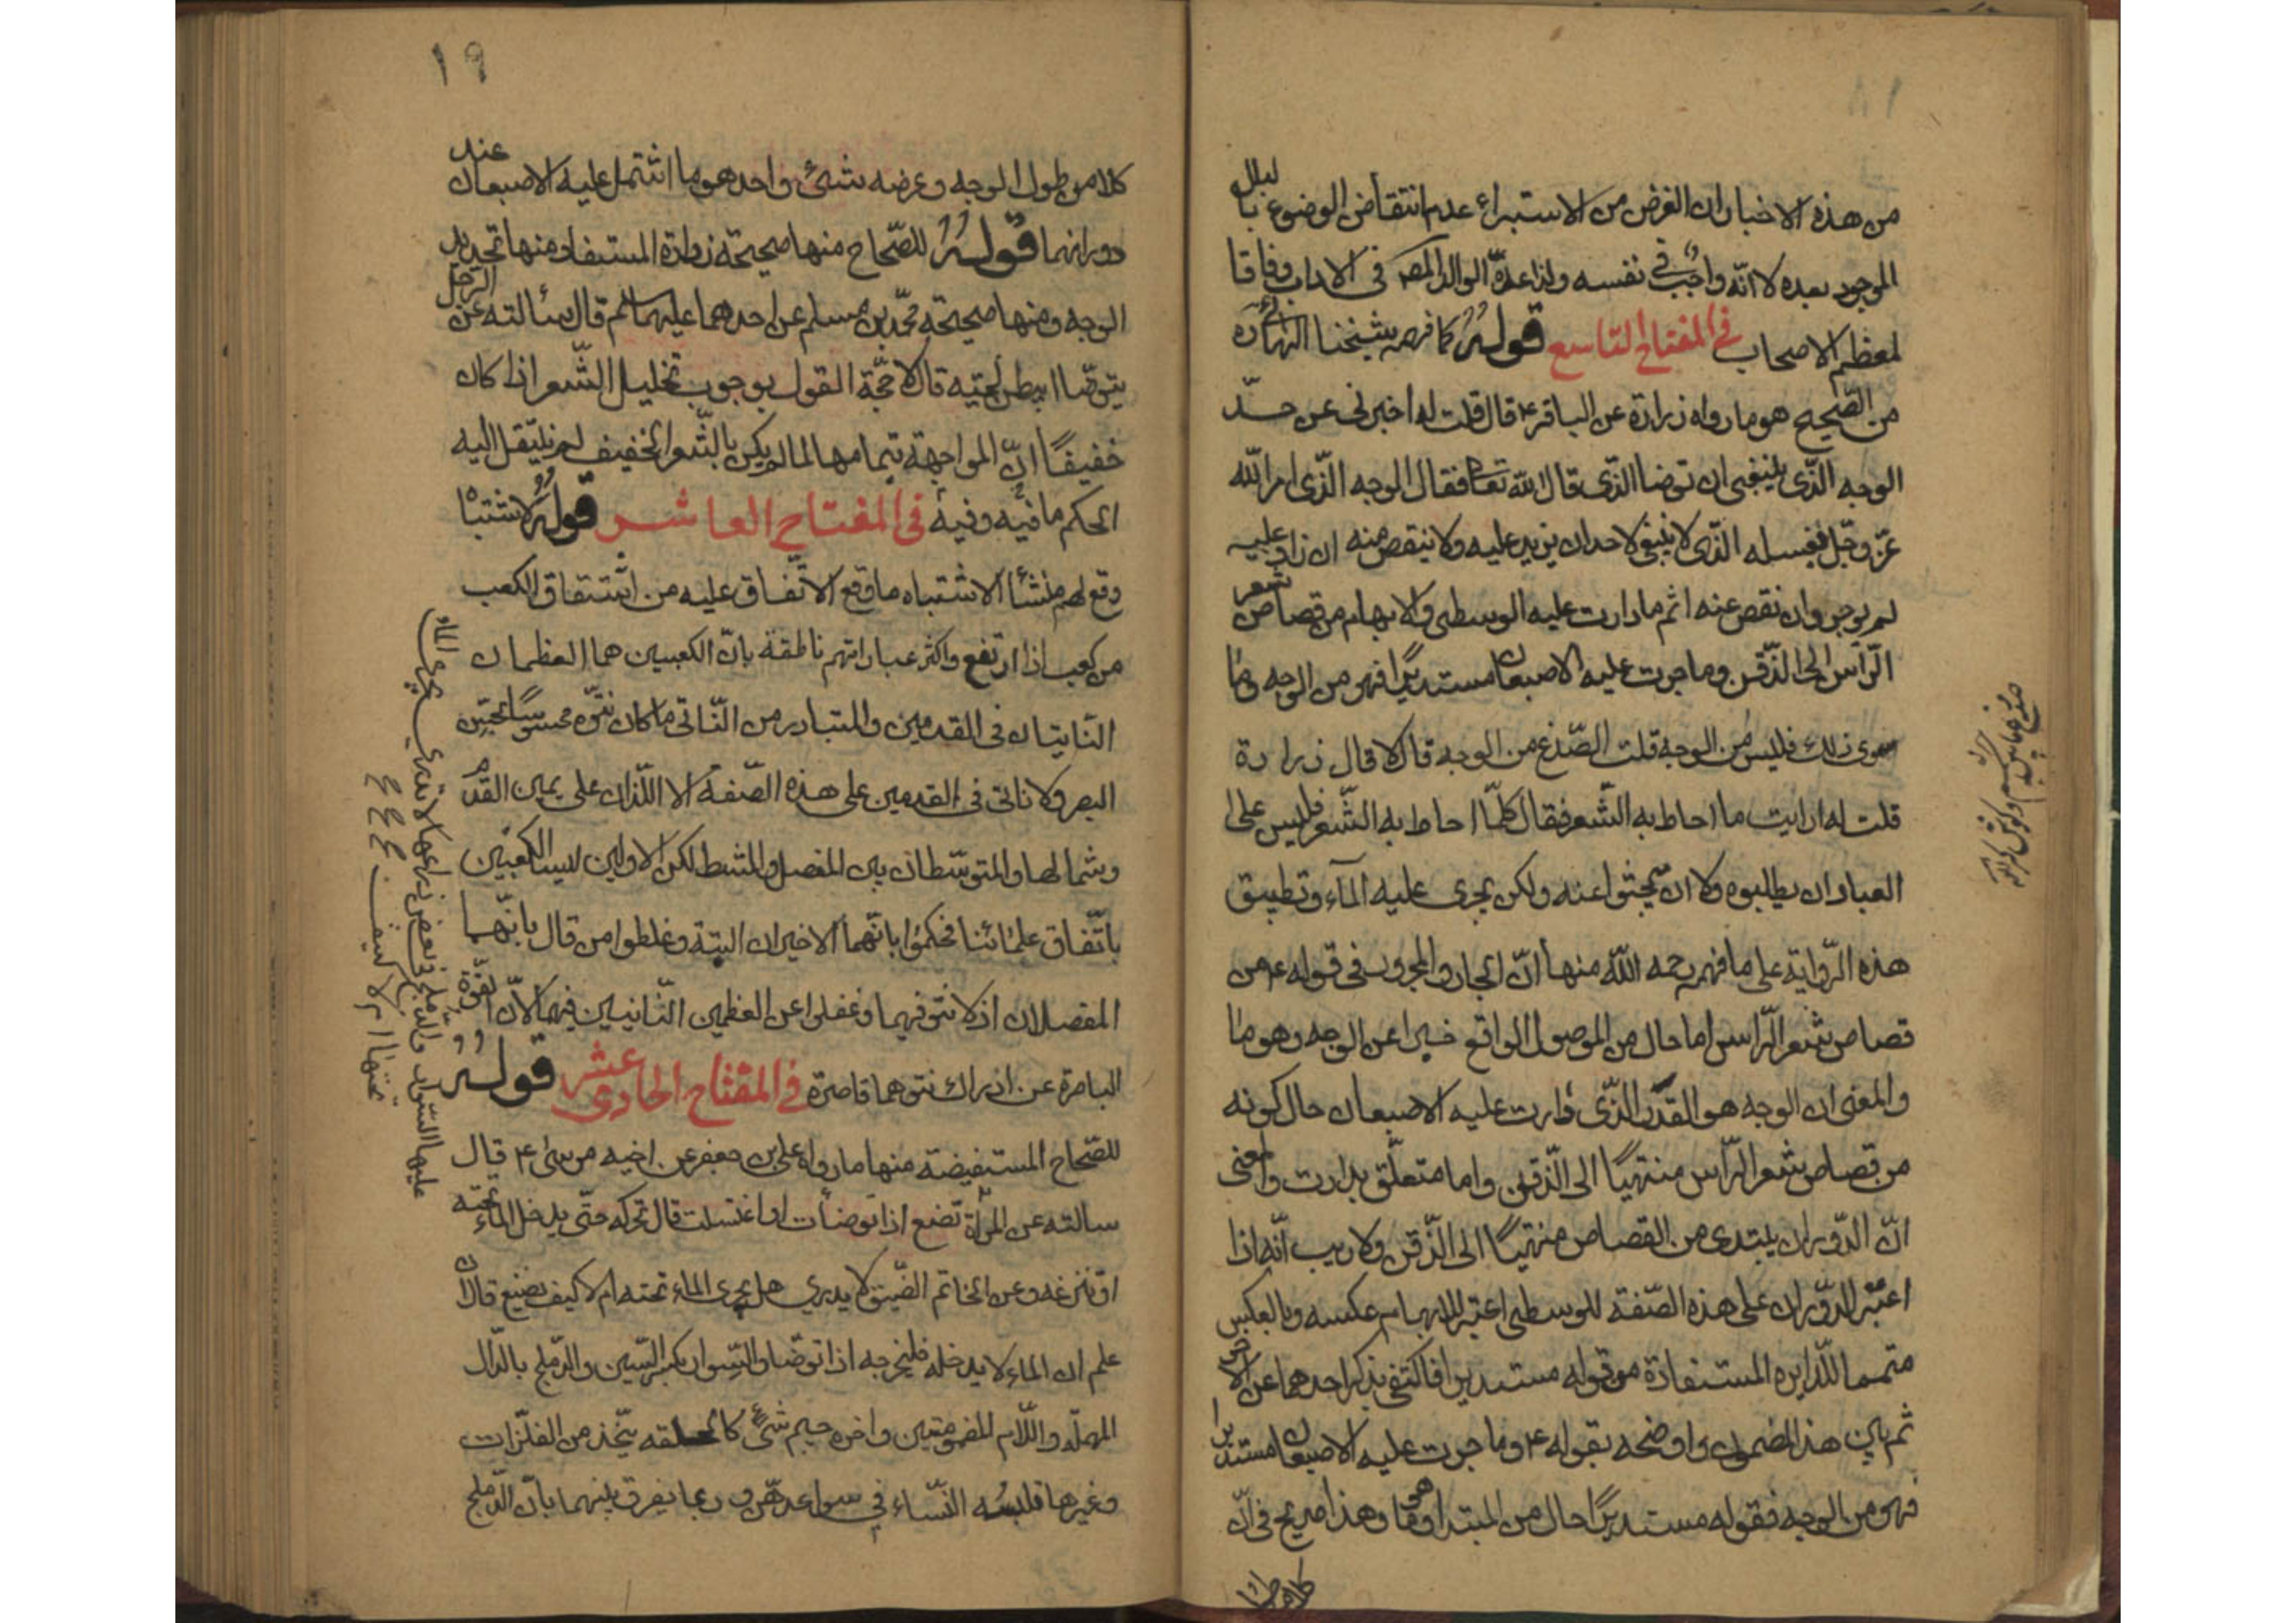 من هذه الاخبار ان الغرض من الاستبراء عدم انتقاض الوضوء بالبلل
الموجود بعده لا انّه واجب في نفسه ولذا عدّه الوالد المص في الاداب وفاقا
لمعظم الاصحاب في المفتاح التاسع قوله كما فهمه شيخنا البهائي ره
من الصّحيح هو ما رواه زرارة عن الباقر ع قال قلت له اخبرنى عن حدّ
الوجه الّذى ينبغى ان توضا الّذى قال الله تعا فقال الوجه الّذى امر الله
عزّ وجلّ بغسله الّذى لا ينبغى لاحد ان يزيد عليه ولا ينقص منه ان زاد عليه
لم يوجر وان نقص عنه اثم ما دارت عليه الوسطى والابهام من قصاص شعر
الرّأس الى الذّقن وما جرت عليه الاصبعان مستديرًا فهو من الوجه وما
سوى ذلك فليس من الوجه قلت الصّدغ من الوجه قال لا قال زرارة
قلت له ارايت ما احاط به الشّعر فقال كلّما احاط به الشّعر فليس على
العباد ان يطلبوه ولا ان يبحثوا عنه ولكن يجرى عليه المآء وتطبيق
هذه الرّواية على ما فهمه رحمه الله منها انّ الجار والمجرور فى قوله ع من
قصاص شعر الرّاس اما حال من الموصول الواقع خبرا عن الوجه وهو ما
والمعنى ان الوجه هو القدر الّذى دارت عليه الاصبعان حال كونه
من قصاص شعر الرّأس منتهيًا الى الذّقن واما متعلّق بدارت والمعنى
انّ الدّوران يبتدى من القصاص منتهيًا الى الذّقن ولا ريب انّه اذا
اعتبر الدّوران على هذه الصّفة للوسطى اعتبر للابهام عكسه وبالعكس
متمما للدّايره المستفادة من قوله مستديرا فاكتفى بذكر احدهما عن الاخر
ثم بيّن هذا المضمون واوضحه بقوله ع وما جرت عليه الاصبعان مستديرا
فهو من الوجه فقوله مستديرًا حال من المبتدا وهو ما وهذا صريح في انّ
كلا من طول
١٩
كلا من طول الوجه وعرضه شئ واحد هو ما اشتمل عليه الاصبعان عند
دورانهما قوله للصّحاح منها صحيحة زرارة المستفاد منها تحديد
الوجه ومنها صحيحة محمّد بن مسلم عن احدهما عليهما السلم قال سألته عن الرّجل
يتوضّا ايبطن لحيته قال لا حجّة القول بوجوب تخليل الشّعر اذا كان
خفيفًا انّ المواجهة بتمامها لما لم يكن بالشّعر الخفيف لم ينتقل اليه
الحكم ما فيه وفيه في المفتاح العاشر قوله لاشتباه
وقع لهم منشأ الاشتباه ما وقع الاتّفاق عليه من اشتقاق الكعب
من كعب اذا ارتفع واكثر عباراتهم ناطقة بانّ الكعبين هما العظمان
النّاتيان فى القدمين والمتبادر من النّاتى ما كان نتوّه محسوسًا بحسّ
البصر ولا ناتى في القدمين على هذه الصّفة الا اللّذان على يمين القدم
وشمالها والمتوسّطان بين المفصل والمشط لكن الاولين ليسا الكعبين
باتّفاق علمائنا فحكموا بانّهما الاخيران البتة وغلطوا من قال بانّهما
المفصلان اذ لا نتو فيهما وغفلوا عن العظمين النّاتيين فيهما لانّ القوّة
الباصرة عن ادراك نتوهما قاصرة في المفتاح الحادي عشر قوله
للصّحاح المستفيضة منها ما رواه علي بن جعفر عن اخيه موسى ع قال
سالته عن المرأة تصنع اذا توضأت او اغتسلت قال تحركه حتّى يدخل الماء تحته
او تنزعه وعن الخاتم الضّيق لا يدري هل يجري الماء تحته ام لا كيف يصنع قال ان
علم ان الماء لا يدخله فليخرجه اذا توضّا والسّوار بكسر السّين والدّملج بالدّال
المهملة واللّام المضمومتين واخره جيم شئ كالحلقه يتّخذ من الفلزّات
وغيرها تلبسه النّساء في سواعدهنّ وربما يفرق بينهما بانّ الدّملج
عليها السّوار والدّملج في بعض ذراعها لا تدري يجري الماء
تحتها ام لا كيف